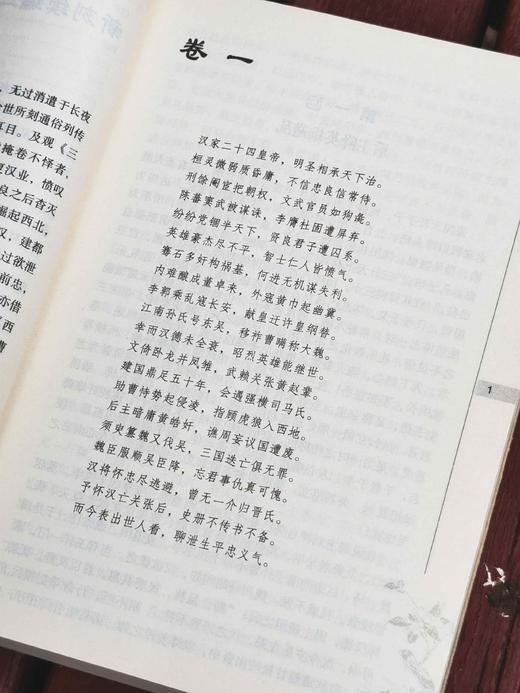 新刻续编
无过消遣于长夜
世所刻通俗列传
耳目。及观《三
掩卷不怿者，
汉业，愤叹
良之后杳灭
崛起西北，
汉，建都
过欲泄
前忠，
亦借
《西
曹
卷一
汉家二十四皇帝，明圣相承天下治。
桓灵微弱质昏庸，不信忠良信常侍。
刑馀阉宦把朝权，文武官员如狗彘。
陈蕃窦武被谋诛，李膺杜固遭屏弃。
纷纷党锢半天下，贤良君子遭囚系。
英雄豪杰尽不平，智士仁人皆愤气。
骞石多奸构祸基，何进无机谋失利。
内难酿成董卓来，外寇黄巾起幽冀。
李郭乘乱寇长安，献皇迁许皇纲替。
江南孙氏号东吴，移祚曹瞒称大魏。
幸而汉德未全衰，昭烈英雄能继世。
文倚卧龙并凤雏，武赖关张黄赵辈。
建国鼎足五十年，会遇强横司马氏。
助曹恃势妃侵凌，指顾虎狼入西地。
后主暗庸黄皓奸，谯周妄议国遭废。
须史篡魏又伐吴，三国迭亡俱无罪。
魏臣服顺吴臣降，忘君事仇真可愧。
汉将怀忠尽逃避，曾无一介归晋氏。
予怀汉亡关张后，史册不传书不备。
而今表出世人看，聊泄生平忠义气。
1